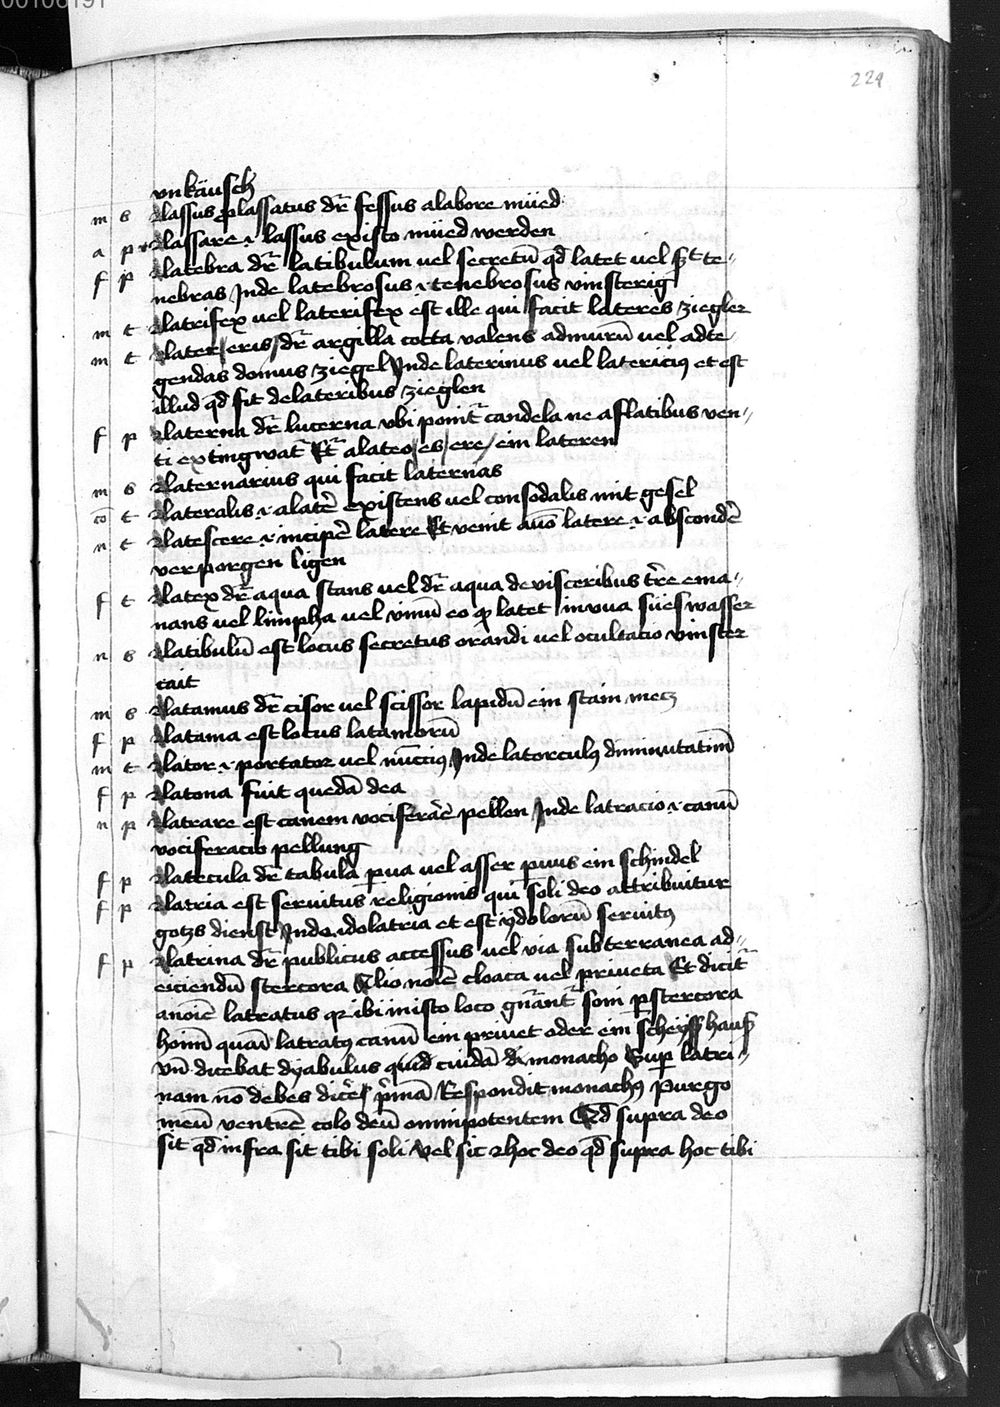 00106191
224
vnkäusch
m s Lassus plassatus dr̄ fessus a labore müed
a p Lassare .i. lassus existo müed werden
f p Latebra dr̄ latibulum vel secretū qd̄ latet vel te-
nebras Inde latebrosus .i. tenebrosus vinsterig
m t Latrifex vel laterifex est ille qui facit lateres ziegler
m t Later / eris / dr̄ argilla cocta valens ad murū vel ad te-
gendas domus ziegel Inde laterinus vel latericiꝰ et est
illud qd̄ fit de lateribus zieglen
f p Laterna dr̄ lucerna vbi ponit̄ candela ne a flatibus ven-
ti extingwat̄ Et̄ a lateo / es / ere / ein lateren
m s Laternarius qui facit laternas
cō t Lateralis .i. a latē existens vel consodalis mit gesel
n t Latescere .i. incipē latere Et venit a latere .i. abscondē
verporgen ligen
f t Latex dr̄ aqua stans vel dr̄ aqua de visceribus tr̄e ema-
nans vel limpha vel vinū eo qꝫ latet in vua süeswasser
n s Latibulū est locus secretus orandi vel ocultacio vinster
cait
m s Latamus dr̄ cisor vel scissor lapidū ein stain mecz
f p Latama est locus latamorū
m t Lator .i. portator vel nūcciꝰ Inde latorculꝰ diminutatim̄
f p Latona fuit quedā dea
n p Latrare est canem vociferar̄e pellen Inde latracio .i. canū
vociferacio pellung
f p Latecula dr̄ tabula pͣua vel asser pͣuus ein schindel
f p Latria est seruitus religionis qui soli deo attribuitur
gotzs dienst Inde idolatria et est ydolorū seruitꝰ
f p Latrina dr̄ publicus accessus vel via subterranea ad-
eiciendū stercora Alio noīe cloaca vel priueta Et dicit̄
a noīe latratus qꝛ ibi in isto loco gn̄ant̄ soni p stercora
hoīm quā latratꝰ canū ein priuet oder ein scheysshaus
Vn̄ dicebat dyabulus quid cuidā monacho Sup latri-
nam nō debes dicē pͥmā Respondit monachꝰ Purgo
meū ventrē colo deū omnipotentem Qd̄ supra deo
sit qd̄ infra sit tibi soli Vel sic hoc deo qd̄ supra hoc tibi